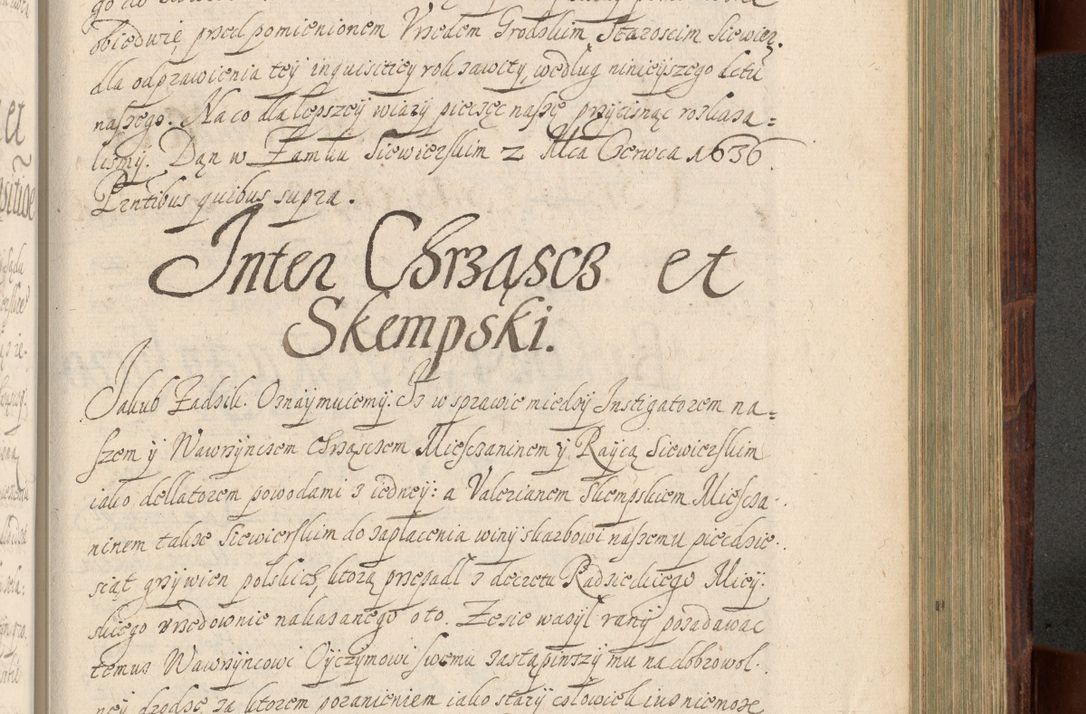 obiedwie, przed pomienionem Vrzedem Grodzkim Staroscim Siewierz.
dla odprawienia tey inquisitiey rok zawity, według ninieyszego Actu
naszego. Na co dla lepszey wiary pieczęc naszę przycisnąc roskaza=
lismy. Dąn w Zamku Siewierskim 2 Mca Czerwca 1636
Przntibus quibus supra.
Inter Chrząscz et
Skempski.
Jakub Zadzik. Oznaymuiemy. Iz w sprawie miedzy Instigatorem na=
szem y Wawrzynczem Chrząsczem Miesczaninem y Raycą Siewierskim
iako dellatorem powodami z iedney: a Valerianem Skempskiem Miescza.
ninem takze Siewierskim do zaplacenia winy skarbowi naszemu piecdzie.
sciąt grzywien polskich, ktorą przepadl z decretu Radzieckiego Miey.
skiego vrzedownie nakazanego o to. Ze sie wazyl rany pozadawac
temuz Wawrzyncowi Oyczymowi swemu zastąpiwszy mu na dobrowol.
ney drodze za ktorem poranieniem iako stary człowiek iuz niemoze